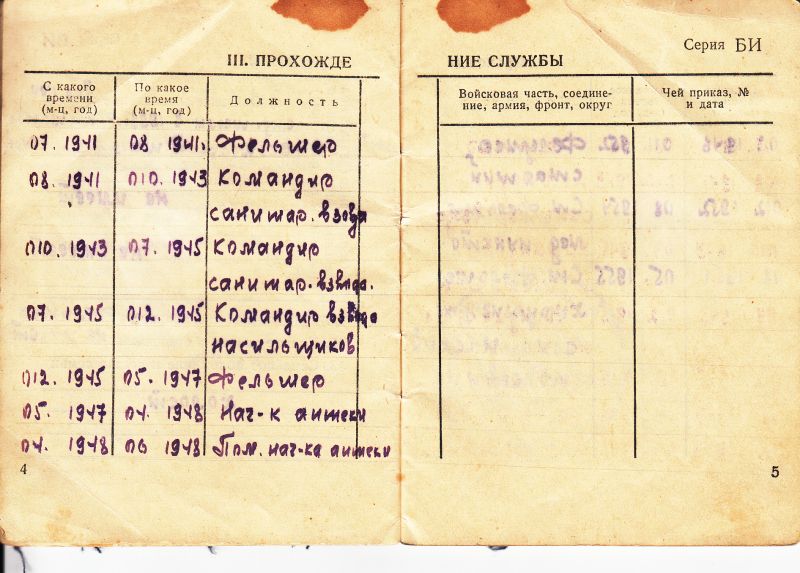 III. ПРОХОЖДЕ
С какого времени (м-ц, год)
По какое время (м-ц, год)
Должность
07. 1941 08 1941. Фельшер
08. 1941 010. 1943 Командир
санитар. взвода
010. 1943 07. 1945 Командир
санитар. взвода.
07. 1945 012. 1945 Командир взвода
насильщиков
012. 1945 05. 1947 Фельшер
05. 1947 04. 1948 Нач-к аптеки
04. 1948 06 1948 Пом. нач-ка аптеки
4
Серия БИ
НИЕ СЛУЖБЫ
Войсковая часть, соедине-
ние, армия, фронт, округ
Чей приказ, №
и дата
5